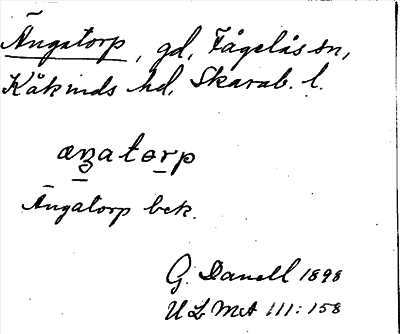 Ängatorp, gd, Fågelås sn,
Kåkinds hd, Skarab. l.
æŋatɷrp
Ängatorp bek.
G. Danell 1898
ULMA 111:158